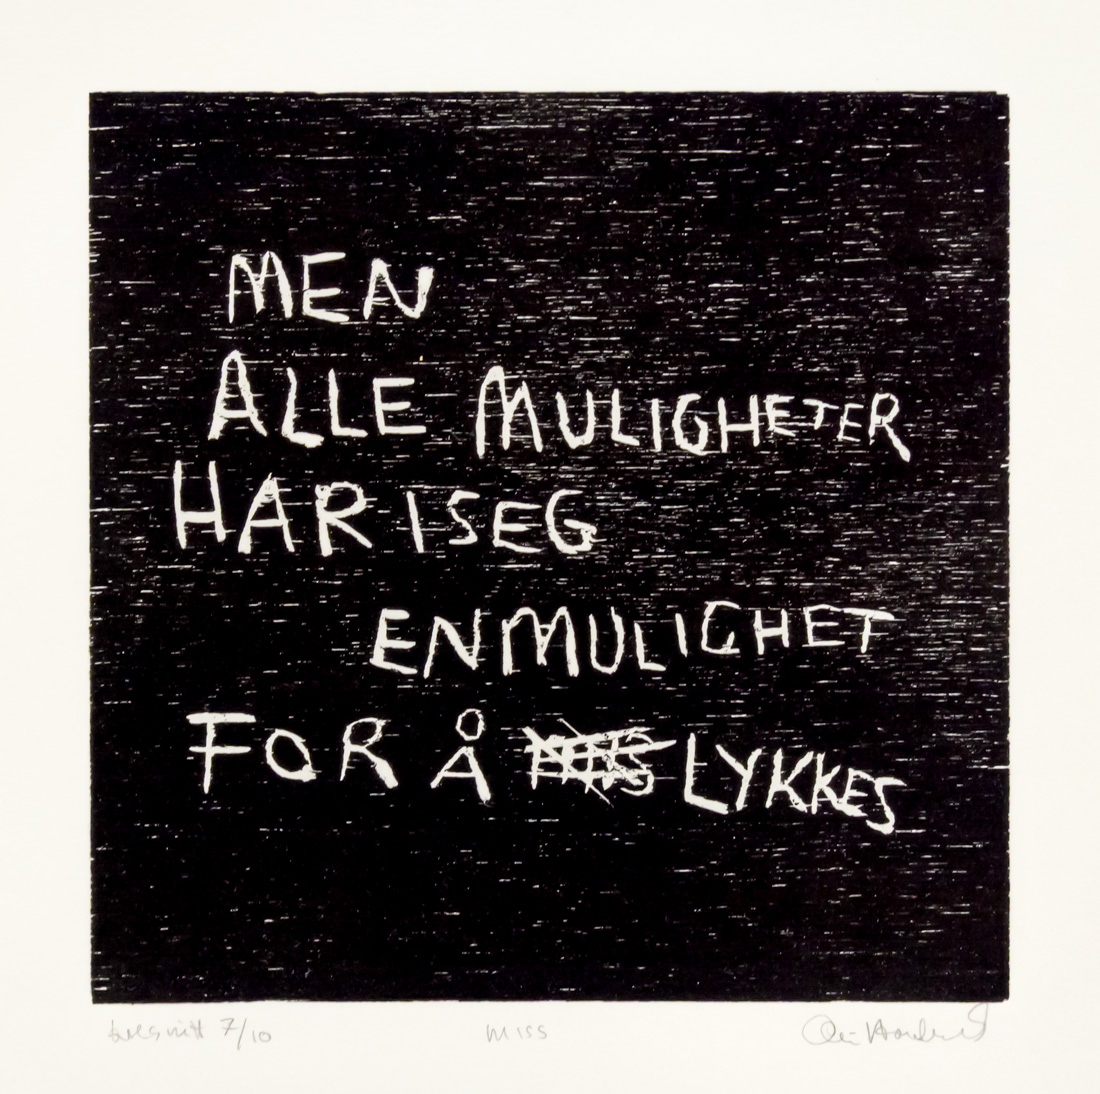 MEN
ALLE MULIGHETER
HAR I SEG
EN MULIGHET
FOR Å LYKKES
tresnitt 7/10 MISS